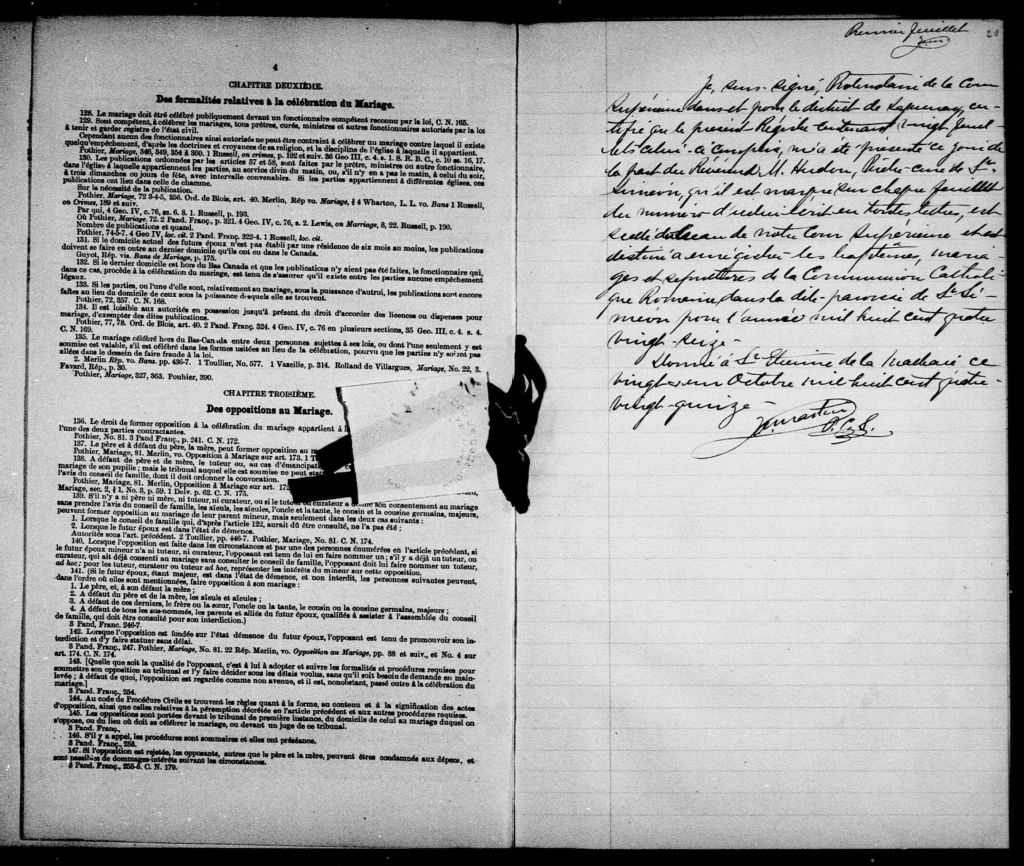 4
CHAPITRE DEUXIÈME.
Des formalités relatives à la célébration du Mariage.
128. Le mariage doit être célébré publiquement devant un fonctionnaire compétent reconnu par la loi, C. N. 165.
129. Sont compétent, à célébrer les mariages, tous prêtres, curés, ministres et autres fonctionnaires autorisés par la loi
à tenir et garder registre de l'état civil.
Cependant aucun des fonctionnaires ainsi autorisés ne peut être contraint à célébrer un mariage contre lequel il existe
quelqu'empêchement, d'après les doctrines et croyances de sa religion, et la discipline de l'église à laquelle il appartient.
Pothier, Mariage, 346, 349, 354 & 360. 1 Russell, on crimes, p. 192 et suiv. 36 Geo III, c. 4. s. 1. S. R. B. C., c. 10 ss. 16, 17.
130. Les publications ordonnées par les articles 57 et 58, sont faites par le prêtre, ministre ou autre fonctionnaire,
dans l'église à laquelle appartiennent les parties, au service divin du matin, ou, s'il n'y en a pas le matin, à celui du soir,
à trois dimanches ou jours de fête, avec intervalle convenables. Si les parties appartiennent à différentes églises, ces
publications ont lieu dans celle de chacune.
Sur la nécessité de la publication.
Pothier, Mariage, 72 3-4-5, 256. Ord. de Blois, art. 40. Merlin, Rép vo. Mariage, § 4 Wharton, L. L. vo. Bans 1 Russell,
on Crimes, 189 et suiv.
Par qui, 4 Geo. IV, c. 76, ss. 6. 8. 1. Russell, p. 193.
Où Pothier, Mariage. 72. 2 Pand. Franç., p. 321. 4 Geo. IV, c. 76, s. 2. Lewis, on Marriage, 8, 22. Russell, p. 190.
Nombre de publications et quand.
Pothier, 74-5-7. 4 Geo IV, loc. cit. 2 Pand. Franç. 322-4. 1 Russell, loc. cit.
131. Si le domicile actuel des futurs époux n'est pas établi par une résidence de six mois au moins, les publications
doivent se faire en outre au dernier domicile qu'ils ont eu dans le Canada.
Guyot, Rép. vis. Bans de Mariage, p. 175.
132. Si le dernier domicile est hors du Bas Canada et que les publications n'y aient pas été faites, le fonctionnaire qui,
dans ce cas, procède à la célébration du mariage, est tenu de s'assurer qu'il existe entre les parties aucune empêchement
légaux.
133. Si les parties, ou l'une d'elle sont, relativement au mariage, sous la puissance d'autrui, les publications sont encore
faites au lieu du domicile de ceux sous la puissance desquels elle se trouvent.
Pothier, 72, 357. C. N. 168.
134. Il est loisible aux autorités en possession jusqu'à présent du droit d'accorder des licences ou dispenses pour
mariage, d'exempter des dites publications.
Pothier, 77, 78. Ord. de Blois, art. 40. 2 Pand. Franç. 324. 4 Geo. IV, c. 76 en plusieurs sections, 35 Geo. III, c. 4. s. 4.
C. N. 169.
135. Le mariage célébré hors du Bas-Canada entre deux personnes sujettes à ses lois, ou dont l'une seulement y est
soumise est valable, s'il est célébré dans les formes usitées au lieu de la célébration, pourvu que les parties n'y soient pas
allées dans le dessein de faire fraude à la loi.
2. Merlin Rép. vo. Bans. pp. 436-7. 1 Toullier, No. 577. 1 Vazeille, p. 314. Rolland de Villargues, Mariage, No. 22, 3.
Favard, Rép., p. 30.
Pothier, Mariage, 327, 363. Pouhier, 390.
CHAPITRE TROISIÈME.
Des oppositions au Mariage.
136. Le droit de former opposition à la célébration du mariage appartient à
l'une des deux parties contractantes.
Pothier, No. 81. 3 Pand Franç., p. 241. C. N. 172.
137. Le père et à défaut du père, la mère, peut former opposition au
Pothier, Mariage, 81. Merlin, vo. Opposition à Mariage sur art. 173. 1
138. A défaut de père et de mère, le tuteur ou, au cas d'émancipat
mariage de son pupille; mais le tribunal auquel elle est soumise ne peut stat
l'avis du conseil de famille, dont il doit ordonner la convocation.
Pothier, Mariage, 81. Merlin, Opposition à Mariage sur art. 175
Mariage, sec. 2, § 1, No. 3, p. 59. 1 Delv. p. 62. C. N. 175.
139. S'il n'y a ni père ni mère, ni tuteur, ni curateur, ou si le tuteur ou curateur a donné son consentement au mariage
sans prendre l'avis du conseil de famille, les aïeuls, les aïeules, l'oncle et la tante, le cousin et la cousine germains, majeurs,
peuvent former opposition au mariage de leur parent mineur, mais seulement dans les deux cas suivants:
1. Lorsque le conseil de famille qui, d'après l'article 122, aurait dû être consulté, ne l'a pas été;
2. Lorsque le futur époux est dans l'état de démence.
Autorités sous l'art. précédent. 2 Toullier, pp. 446-7. Pothier, Mariage, No. 81. C. N. 174.
140. Lorsque l'opposition est faite dans les circonstances et par une des personnes énumérées en l'article précédent, si
le futur époux mineur n'a ni tuteur, ni curateur, l'opposant est tenu de lui en faire nommer un; s'il y a déjà un tuteur, ou
curateur, qui ait déjà consenti au mariage sans consulter le conseil de famille, l'opposant doit lui faire nommer un tuteur,
ad hoc; pour les tuteur, curateur ou tuteur ad hoc, représenter les intérêts du mineur sur cette opposition.
141. (Si le futur époux, étant majeur, est dans l'état de démence, et non interdit, les personnes suivantes peuvent,
dans l'ordre où elles sont mentionnées, faire opposition à son mariage:
1. Le père, et, à son défaut la mère;
2. A défaut du père et de la mère, les aïeuls et aïeules;
3. A défaut de ces derniers, le frère ou la sœur, l'oncle ou la tante, le cousin ou la cousine germains, majeurs;
4. A défaut de tous les sus-nommés, les parents et alliés du futur époux, qualifiés à assister à l'assemblée du conseil
de famille, qui doit être consulté pour son interdiction.)
3 Pand, Franc. 246-7.
142. Lorsque l'opposition est fondée sur l'état démence du futur époux, l'opposant est tenu de promouvoir son in-
terdiction et d'y faire statuer sans délai.
3 Pand. Franç., 247. Pothier, Mariage, No. 81. 22 Rép. Merlin, vo. Opposition au Mariage, pp. 88 et suiv., et No. 4 sur
art. 174. C. N. 174.
143. [Quelque que soit la qualité de l'opposant, c'est à lui à adopter et suivre les formalités et procédures requises pour
soumettre son opposition au tribunal et l'y faire décider sous les délais voulus, sans qu'il soit besoin de demande en main-
levée; à défaut de quoi, l'opposition est regardée comme non avenue, et il est, nonobstant, passé outre à la célébration du
mariage.]
3 Pand. Franç., 254.
144. Au code de Procédure Civile se trouvent les règles quant à la forme, au contenu et à la signification des actes
d'opposition, ainsi que celles relatives à la péremption décrétée en l'article précédent et aux autres procédures requises.
145. Les oppositions sont portées devant le tribunal de première instance, du domicile de celui au mariage duquel on
s'oppose, ou du lieu où doit se célébrer le mariage, ou devant un juge de ce tribunal.
3 Pand. Franç.,
146. S'il y a appel, les procédures sont sommaires et elles ont préséance.
3 Pand. Franç., 255.
147. Si l'opposition est rejetée, les opposants, autres que le père et la mère, peuvent êtres condamnés aux dépens, et
sont passibles de dommages-intérêts suivant les circonstances.
3 Pand. Franç., 255-6. C. N. 179.
Premier feuillet
Je, sous-signé, Protonotaire de la Cour
Supérieure dans et pour le district de Saguenay, cer-
tifie que le présent Régistre contenant vingt feuil-
lets celui-ci compris, m'a été présenté ce jour de
la part du Révérend M. Hudon, Prêtre-curé de St
Siméon, qu'il est marqué sur chaque feuillet
du numéro d'icelui écrit en toutes lettres, est
scellé du sceau de notre Cour Supérieure et est
destiné à enrégistrer les baptêmes, maria-
ges et sépultures de la Communion Catholi-
que Romaine dans la dite paroisse de St Si-
méon pour l'année mil huit cent quatre
vingt-seize.
Donné à St Etienne de la Malbaie ce
vingt-un Octobre mil huit cent quatre-
vingt-quinze
P.C.S.